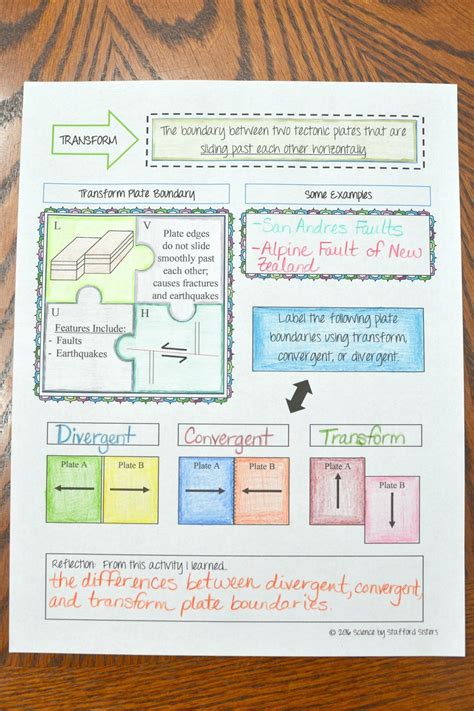 TRANSFORM
The boundary between two tectonic plates that are
sliding past each other horizontally.
Transform Plate Boundary
Some Examples
L
V
Plate edges
do not slide
smoothly past
each other;
causes fractures
and earthquakes
U
Features Include:
- Faults
- Earthquakes
H
-San Andres Faults
-Alpine Fault of New
Zealand
Label the following plate
boundaries using transform,
convergent, or divergent.
Divergent
Convergent
Transform
Plate A
Plate B
Plate A
Plate B
Plate A
Plate B
Reflection: From this activity I learned...
the differences between divergent, convergent,
and transform plate boundaries.
© 2016 Science by Stafford Sisters